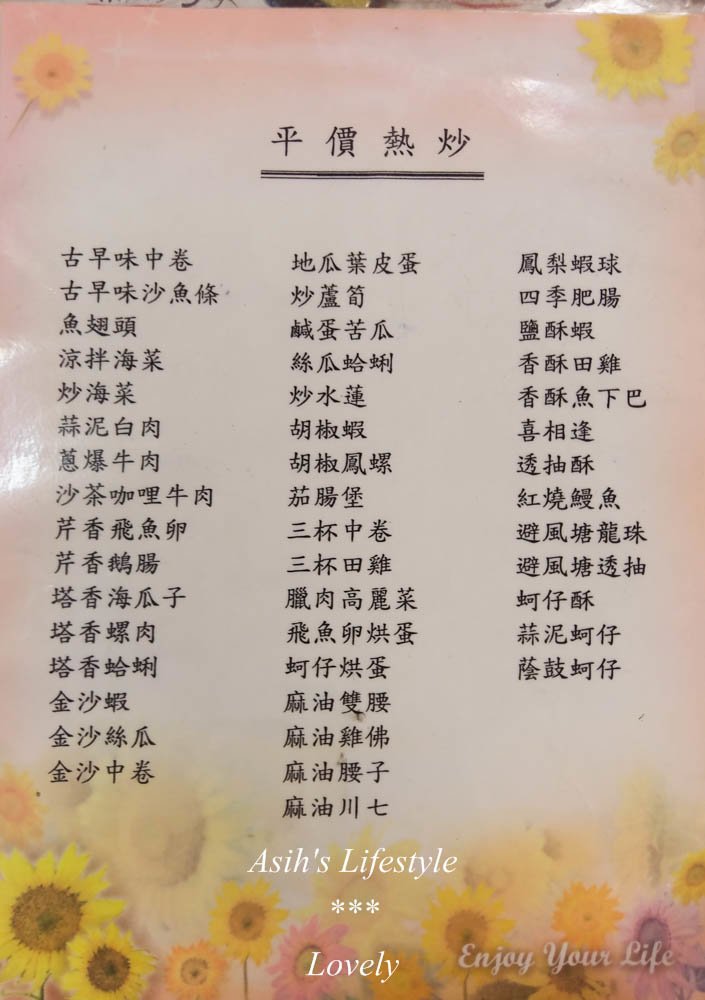 平價熱炒
古早味中卷
古早味沙魚條
魚翅頭
涼拌海菜
炒海菜
蒜泥白肉
蔥爆牛肉
沙茶咖哩牛肉
芹香飛魚卵
芹香鵝腸
塔香海瓜子
塔香螺肉
塔香蛤蜊
金沙蝦
金沙絲瓜
金沙中卷
地瓜葉皮蛋
炒蘆筍
鹹蛋苦瓜
絲瓜蛤蜊
炒水蓮
胡椒蝦
胡椒鳳螺
茄腸堡
三杯中卷
三杯田雞
臘肉高麗菜
飛魚卵烘蛋
蚵仔烘蛋
麻油雙腰
麻油雞佛
麻油腰子
麻油川七
鳳梨蝦球
四季肥腸
鹽酥蝦
香酥田雞
香酥魚下巴
喜相逢
透抽酥
紅燒鰻魚
避風塘龍珠
避風塘透抽
蚵仔酥
蒜泥蚵仔
蔭鼓蚵仔
Asih's Lifestyle
***
Lovely
Enjoy Your Life